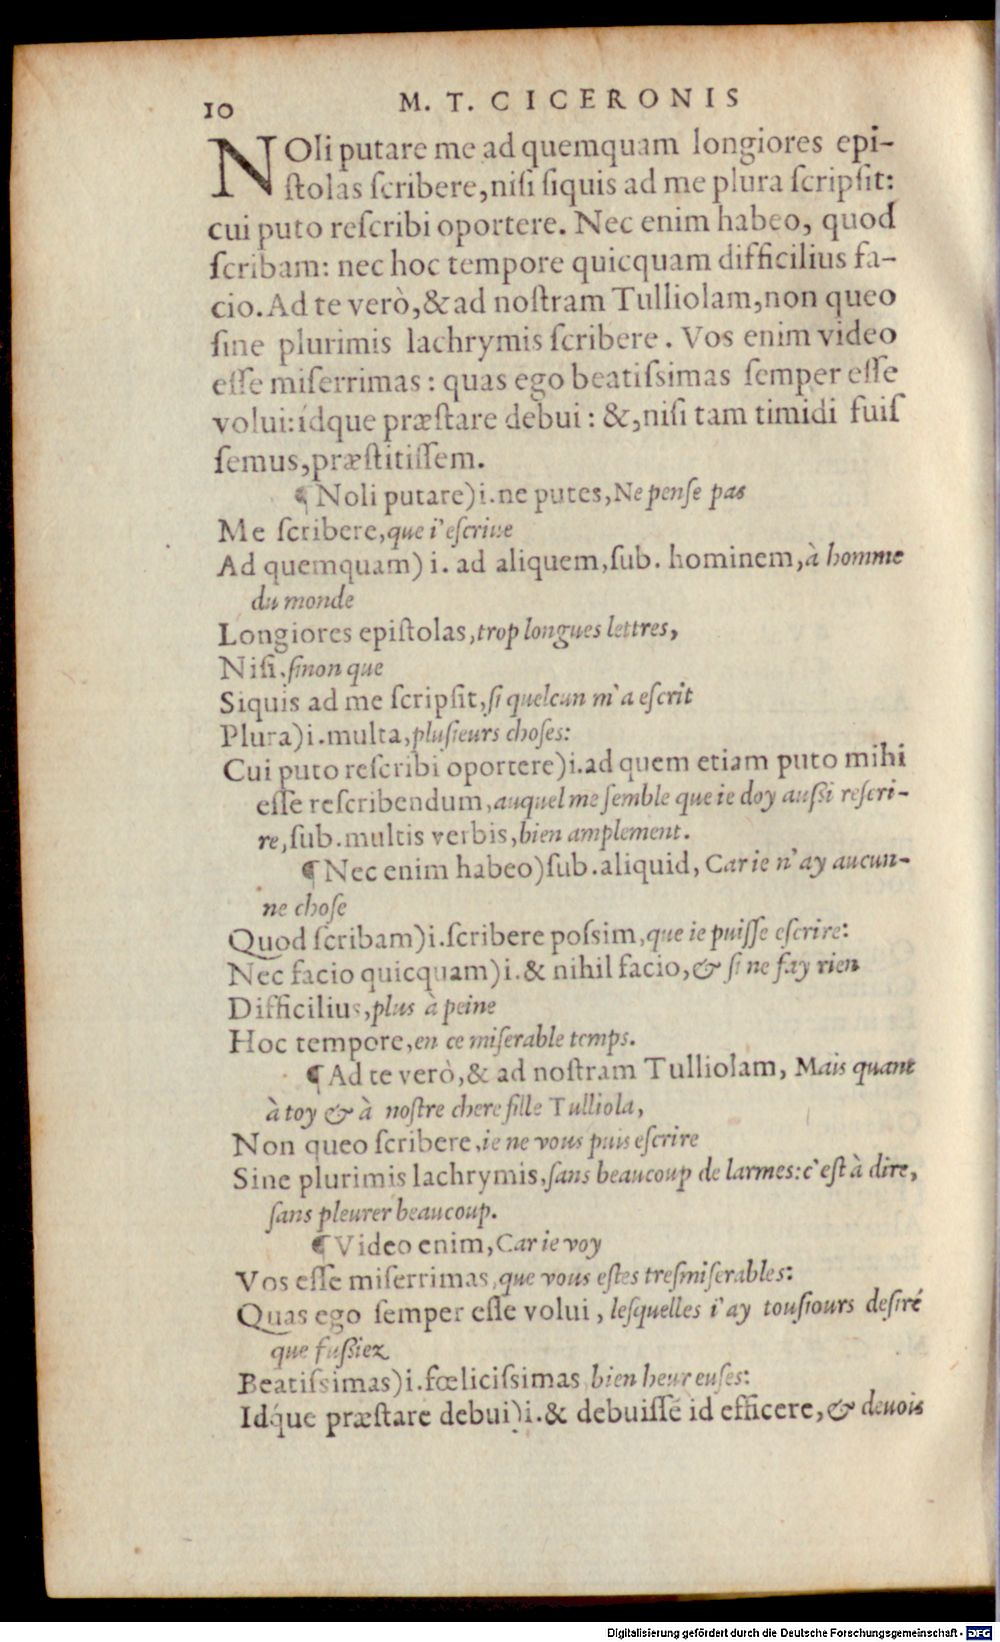 10 M. T. CICERONIS
NOli putare me ad quemquam longiores epi-
ſtolas ſcribere, niſi ſiquis ad me plura ſcripſit:
cui puto reſcribi oportere. Nec enim habeo, quod
ſcribam: nec hoc tempore quicquam difficilius fa-
cio. Ad te verò, & ad noſtram Tulliolam, non queo
ſine plurimis lachrymis ſcribere. Vos enim video
eſſe miſerrimas: quas ego beatiſsimas ſemper eſſe
volui: idque præſtare debui: &, niſi tam timidi fuiſ
ſemus, præſtitiſſem.
¶ Noli putare) i. ne putes, Ne penſe pas
Me ſcribere, que i'eſcriue
Ad quemquam) i. ad aliquem, ſub. hominem, à homme
du monde
Longiores epiſtolas, trop longues lettres,
Niſi, ſinon que
Siquis ad me ſcripſit, ſi quelcun m'a eſcrit
Plura) i. multa, pluſieurs choſes:
Cui puto reſcribi oportere) i. ad quem etiam puto mihi
eſſe reſcribendum, auquel me ſemble que ie doy auſsi reſcri-
re, ſub. multis verbis, bien amplement.
¶ Nec enim habeo) ſub. aliquid, Car ie n'ay aucun-
ne choſe
Quod ſcribam) i. ſcribere poſsim, que ie puiſſe eſcrire:
Nec facio quicquam) i. & nihil facio, & ſi ne fay rien
Difficilius, plus à peine
Hoc tempore, en ce miſerable temps.
¶ Ad te verò, & ad noſtram Tulliolam, Mais quant
à toy & à noſtre chere fille Tulliola,
Non queo ſcribere, ie ne vous puis eſcrire
Sine plurimis lachrymis, ſans beaucoup de larmes: c'eſt à dire,
ſans pleurer beaucoup.
¶ Video enim, Car ie voy
Vos eſſe miſerrimas, que vous eſtes treſmiſerables:
Quas ego ſemper eſſe volui, leſquelles i'ay touſiours deſiré
que fuſsiez
Beatiſsimas) i. fœliciſsimas, bien heureuſes:
Idq́ue præſtare debui) i. & debuiſſe id efficere, & deuois
Digitalisierung gefördert durch die Deutsche Forschungsgemeinschaft - DFG